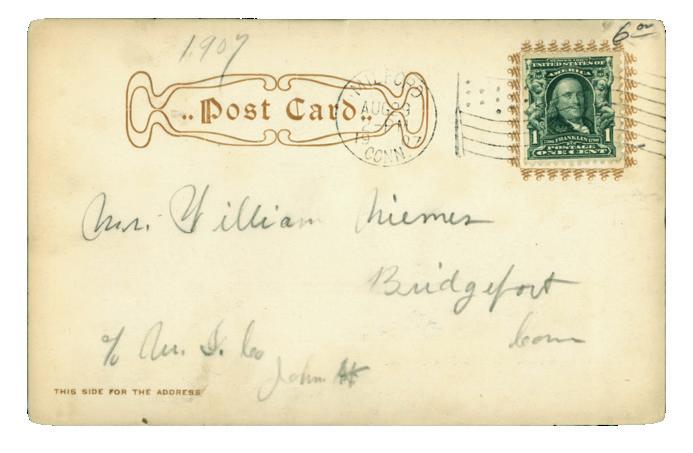 1907
6 00
Post Card
MILFORD
AUG 23
1907
CONN.
SERIES 1902
UNITED STATES OF
AMERICA
1 FRANKLIN 1
POSTAGE
ONE CENT
Mr. William Niemes
Bridgeport
Conn
c/o Mr. S. Co
John St
THIS SIDE FOR THE ADDRESS